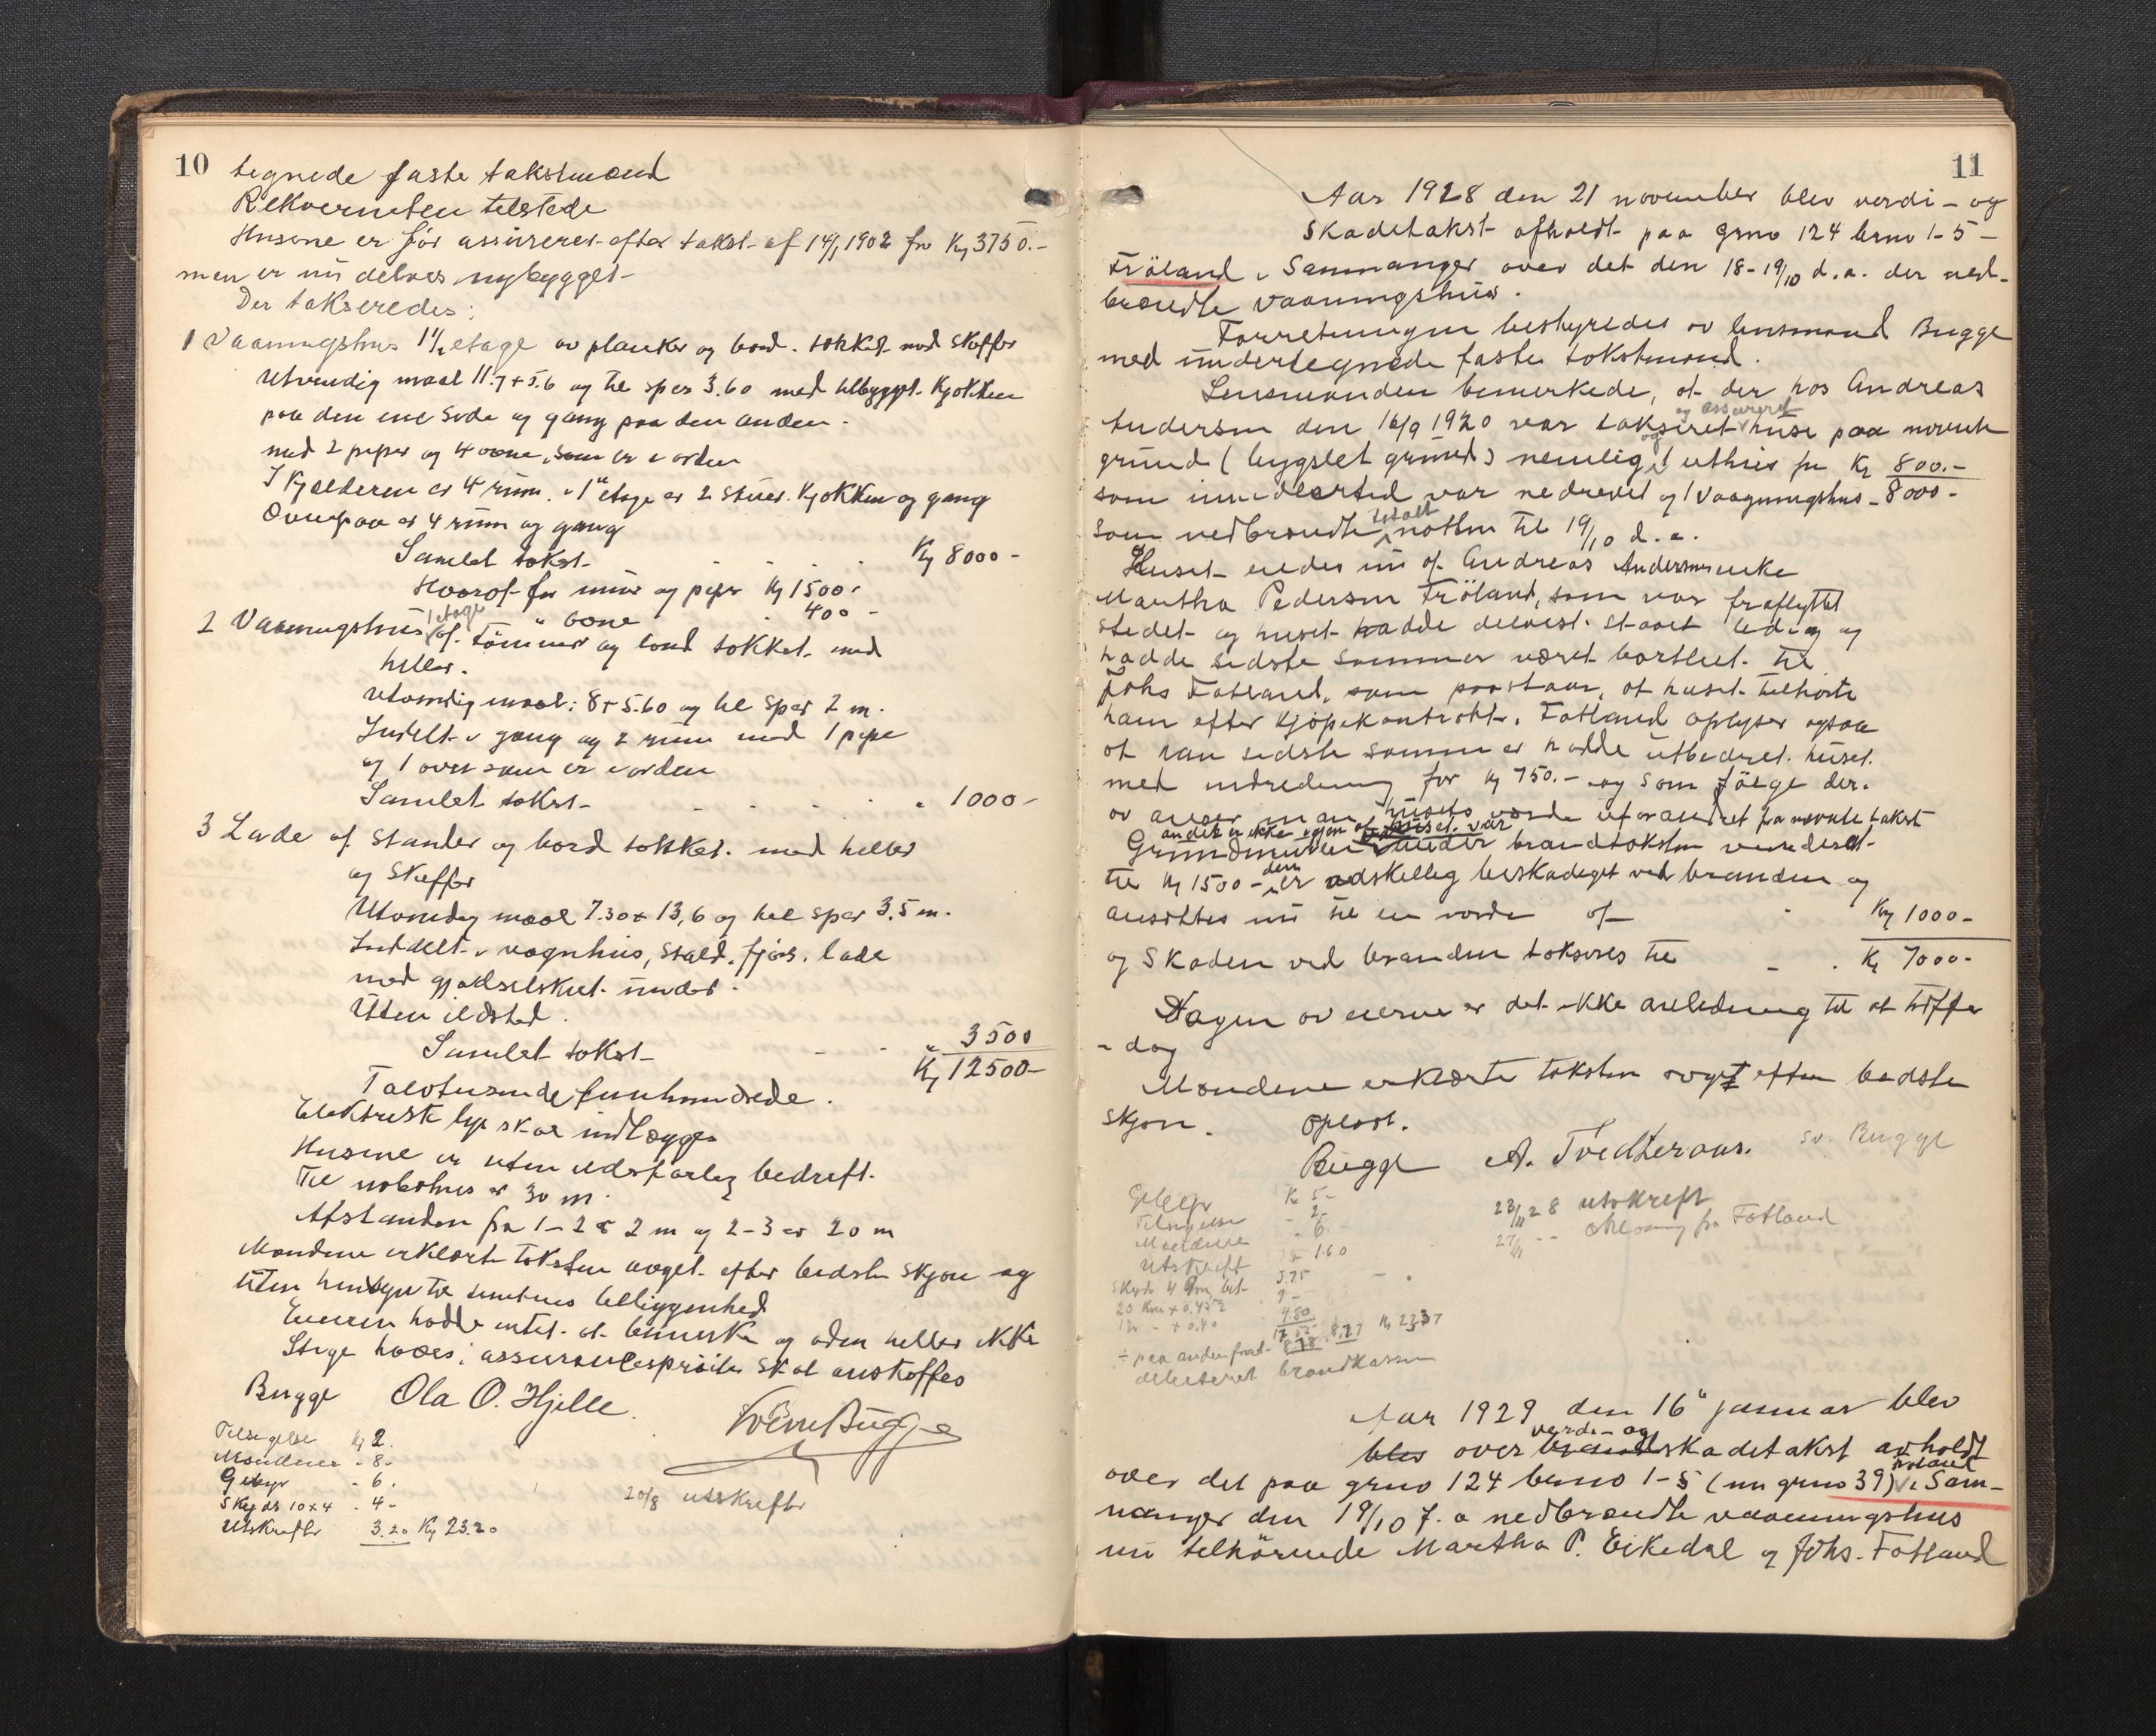 10
tegnede faste takstmænd
Rekvirenten tilstede
Husene er før assureret efter takst af 14/1 1902 for Kr 3750.-
men er nu delvis nybygget
Der takseredes:
1 Vaaningshus 1½ etage av planker og bord. tækket med skiffer
Utvendig maal 11.7 + 5.6 og til spær 3.60 med tilbygget kjøkken
paa den ene side og gang paa den anden.
med 2 piper og 4 ovne, som er i orden
I kjælderen er 4 rum. i 1" etage er 2 stuer. kjøkken og gang
Ovenpaa er 4 rum og gang
Samlet takst Kr 8000 -
Hvoraf for mur og piper Kr 1500 -
" ovne 400 -
2 Vaaningshus 1 etage af tømmer og bord tækket med
heller.
Utvendig maal: 8 + 5.60 og til spær 2 m.
Inddelt i gang og 2 rum med 1 pipe
og 1 ovn som er i orden
Samlet takst " 1000 -
3 Lade af stender og bord tækket med heller
og skiffer
Utvendig maal 7.30 + 13,6 og til spær 3,5 m.
Inddelt i vognhus, stald, fjøs, lade
med gjødselskjel. under.
Uten ildsted.
Samlet takst " 3500
Kr 12500 -
Tolvtusinde femhundrede.
Elektrisk lys skal indlægges
Husene er uten ildsfarlig bedrift.
Til nabohus er 30 m.
Afstanden fra 1 - 2 er 2 m og 2 - 3 er 20 m
Mændene erklærte taksten avget efter bedste skjøn og
uten hensyn til tomtens beliggenhed
Eieren hadde intet at bemerke og aden heller ikke
Stige haves, assurancesprøite skal anskaffes
Bugge Ola O. Hjelle. Sverre Bugge
Tilsigelse Kr 2.
Mændene - 8 -
Gebyr - 6.
Skyds 10 x 4 - 4 -
Utskrifter 3.20 Kr 23.20
20/8 utskrifter
11
Aar 1928 den 21 november blev verdi- og
skadetakst afholdt paa grno 124 brno 1-5 -
Frøland i Samnanger over det den 18-19/10 d.a. der ned-
brændte vaaningshus.
Forretningen bestyredes av lensmand Bugge
med undertegnede faste takstmænd.
Lensmanden bemerkede, at der hos Andreas
og assureret
Andersen den 16/9 1920 var taksert huse paa nævnte
grund (bygslet grund) nemlig og 1 uthus for Kr 800.-
som imidlertid var nedrevet og 1 vaaningshus - 8000 -
som nedbrændte totalt natten til 19/10 d.a.
Huset eiedes nu af Andreas Andersens enke
Martha Pedersen Frøland, som var fraflyttet
stedet og huset hadde delvist staaet ledig og
hadde sidste sommer været bortleiet til
Johs Fotland, som paastaar, at huset tilhørte
ham efter kjøpekontrakt. Fotland oplyser ogsaa
at han sidste sommer hadde utbedret huset
med indredning for Kr 750.- og som følge der-
av anser man husets værdi uforandret fra nævnte takst
Grundmuren under brandtaksten vurderet
til Kr 1500 - den er adskillig beskadiget ved branden og
ansættes nu til en værdi af Kr 1000 -
og skaden ved branden takseres til Kr 7000 -
Nogen av eierne er det ikke anledning til at træffe
i dag
Mændene erklærte taksten avget efter bedste
skjøn. Oplæst.
Bugge A. Tvedteraas. Sv. Bugge
Gebyr Kr 5 -
Tilsigelse - 2 -
Mændene - 6 -
Utskrift - 1.60
23/11 28 utskrift
27/11 -- fra Fotland
debiteret brandkassen
Aar 1929 den 16" januar blev
verdi- og
blev over brandskadetakst avholdt
over det paa grno 124 brno 1-5 (nu grno 39) Frøland i Sam-
nanger den 19/10 f.a nedbrændte vaaningshus
nu tilhørende Martha P. Eikedal og Johs. Fotland